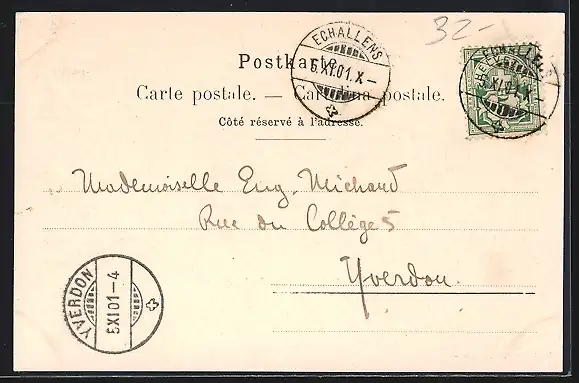 32-
Postkarte.
ECHALLENS
5.XI.01.X-
Carte postale. — Cartolina postale.
Côté réservé à l'adresse.
ECHALLENS
XI.01.X-
HELVETIA
Mademoiselle Eug. Michaud
Rue du Collège 5
Yverdon.
YVERDON
5.XI.01-4